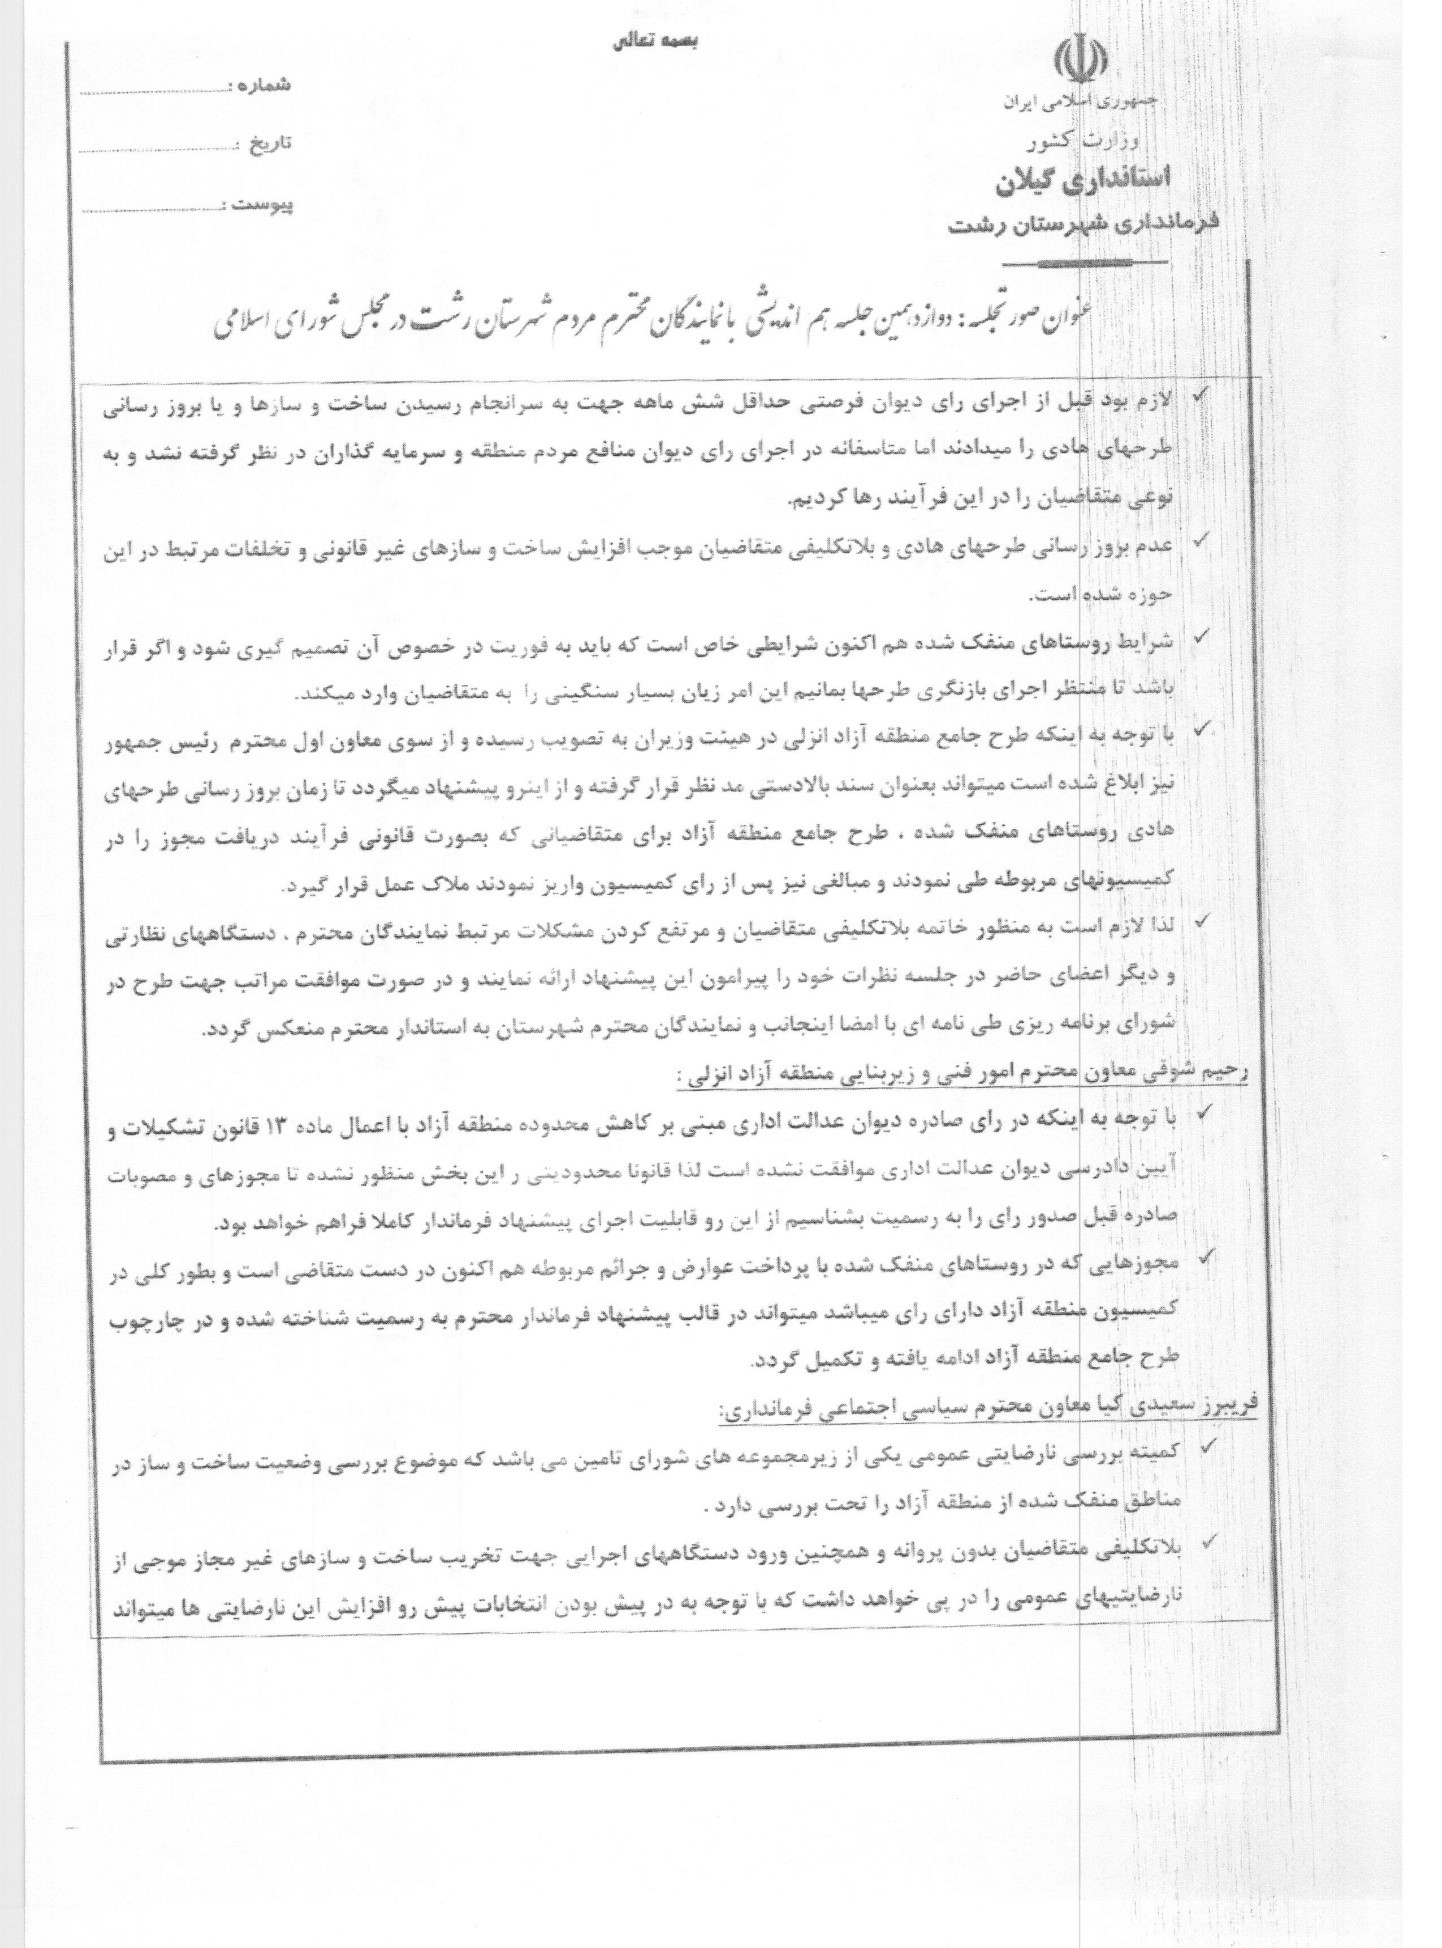 بسمه تعالی
جمهوری اسلامی ایران
وزارت کشور
استانداری گیلان
فرمانداری شهرستان رشت
شماره :
تاریخ :
پیوست :
عنوان صورتجلسه : دوازدهمین جلسه هم اندیشی با نمایندگان محترم مردم شهرستان رشت در مجلس شورای اسلامی
✓ لازم بود قبل از اجرای رای دیوان فرصتی حداقل شش ماهه جهت به سرانجام رسیدن ساخت و سازها و یا بروز رسانی
طرحهای هادی را میدادند اما متاسفانه در اجرای رای دیوان منافع مردم منطقه و سرمایه گذاران در نظر گرفته نشد و به
نوعی متقاضیان را در این فرآیند رها کردیم.
✓ عدم بروز رسانی طرحهای هادی و بلاتکلیفی متقاضیان موجب افزایش ساخت و سازهای غیر قانونی و تخلفات مرتبط در این
حوزه شده است.
✓ شرایط روستاهای منفک شده هم اکنون شرایطی خاص است که باید به فوریت در خصوص آن تصمیم گیری شود و اگر قرار
باشد تا منتظر اجرای بازنگری طرحها بمانیم این امر زیان بسیار سنگینی را به متقاضیان وارد میکند.
✓ با توجه به اینکه طرح جامع منطقه آزاد انزلی در هیئت وزیران به تصویب رسیده و از سوی معاون اول محترم رئیس جمهور
نیز ابلاغ شده است میتواند بعنوان سند بالادستی مد نظر قرار گرفته و از اینرو پیشنهاد میگردد تا زمان بروز رسانی طرحهای
هادی روستاهای منفک شده ، طرح جامع منطقه آزاد برای متقاضیانی که بصورت قانونی فرآیند دریافت مجوز را در
کمیسیونهای مربوطه طی نمودند و مبالغی نیز پس از رای کمیسیون واریز نمودند ملاک عمل قرار گیرد.
✓ لذا لازم است به منظور خاتمه بلاتکلیفی متقاضیان و مرتفع کردن مشکلات مرتبط نمایندگان محترم ، دستگاههای نظارتی
و دیگر اعضای حاضر در جلسه نظرات خود را پیرامون این پیشنهاد ارائه نمایند و در صورت موافقت مراتب جهت طرح در
شورای برنامه ریزی طی نامه ای با امضا اینجانب و نمایندگان محترم شهرستان به استاندار محترم منعکس گردد.
رحیم شوقی معاون محترم امور فنی و زیربنایی منطقه آزاد انزلی :
✓ با توجه به اینکه در رای صادره دیوان عدالت اداری مبنی بر کاهش محدوده منطقه آزاد با اعمال ماده ۱۳ قانون تشکیلات و
آیین دادرسی دیوان عدالت اداری موافقت نشده است لذا قانونا محدودیتی ر این بخش منظور نشده تا مجوزهای و مصوبات
صادره قبل صدور رای را به رسمیت بشناسیم از این رو قابلیت اجرای پیشنهاد فرماندار کاملا فراهم خواهد بود.
✓ مجوزهایی که در روستاهای منفک شده با پرداخت عوارض و جرائم مربوطه هم اکنون در دست متقاضی است و بطور کلی در
کمیسیون منطقه آزاد دارای رای میباشد میتواند در قالب پیشنهاد فرماندار محترم به رسمیت شناخته شده و در چارچوب
طرح جامع منطقه آزاد ادامه یافته و تکمیل گردد.
فریبرز سعیدی کیا معاون محترم سیاسی اجتماعی فرمانداری:
✓ کمیته بررسی نارضایتی عمومی یکی از زیرمجموعه های شورای تامین می باشد که موضوع بررسی وضعیت ساخت و ساز در
مناطق منفک شده از منطقه آزاد را تحت بررسی دارد .
✓ بلاتکلیفی متقاضیان بدون پروانه و همچنین ورود دستگاههای اجرایی جهت تخریب ساخت و سازهای غیر مجاز موجی از
نارضایتیهای عمومی را در پی خواهد داشت که با توجه به در پیش بودن انتخابات پیش رو افزایش این نارضایتی ها میتواند